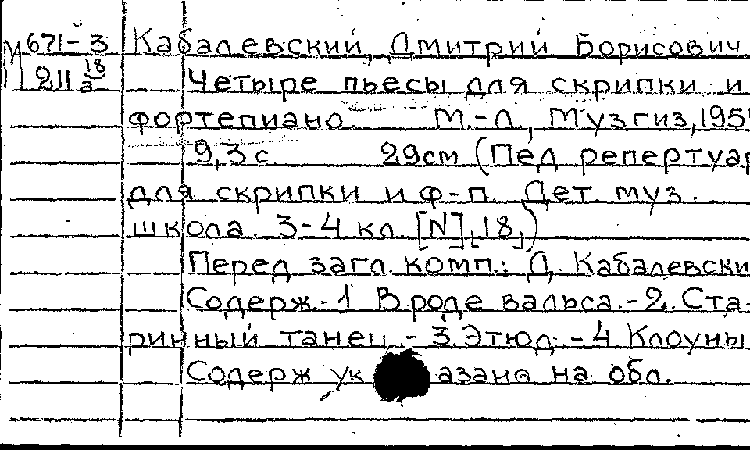 М 671-3 Кабалевский, Дмитрий Борисович
211 18 Четыре пьесы для скрипки и
фортепиано. М.-Л, Музгиз, 195
9,3 с. 29см (Пед репертуар
для скрипки и ф-п. Дет. муз.
школа. 3-4 кл. [N], 18,)
Перед загл. комп.: Д. Кабалевски
Содерж.-1 Вроде вальса.-2. Ста-
ринный танец.-3.Этюд.-4 Клоуны
Содерж ук азано на обл.